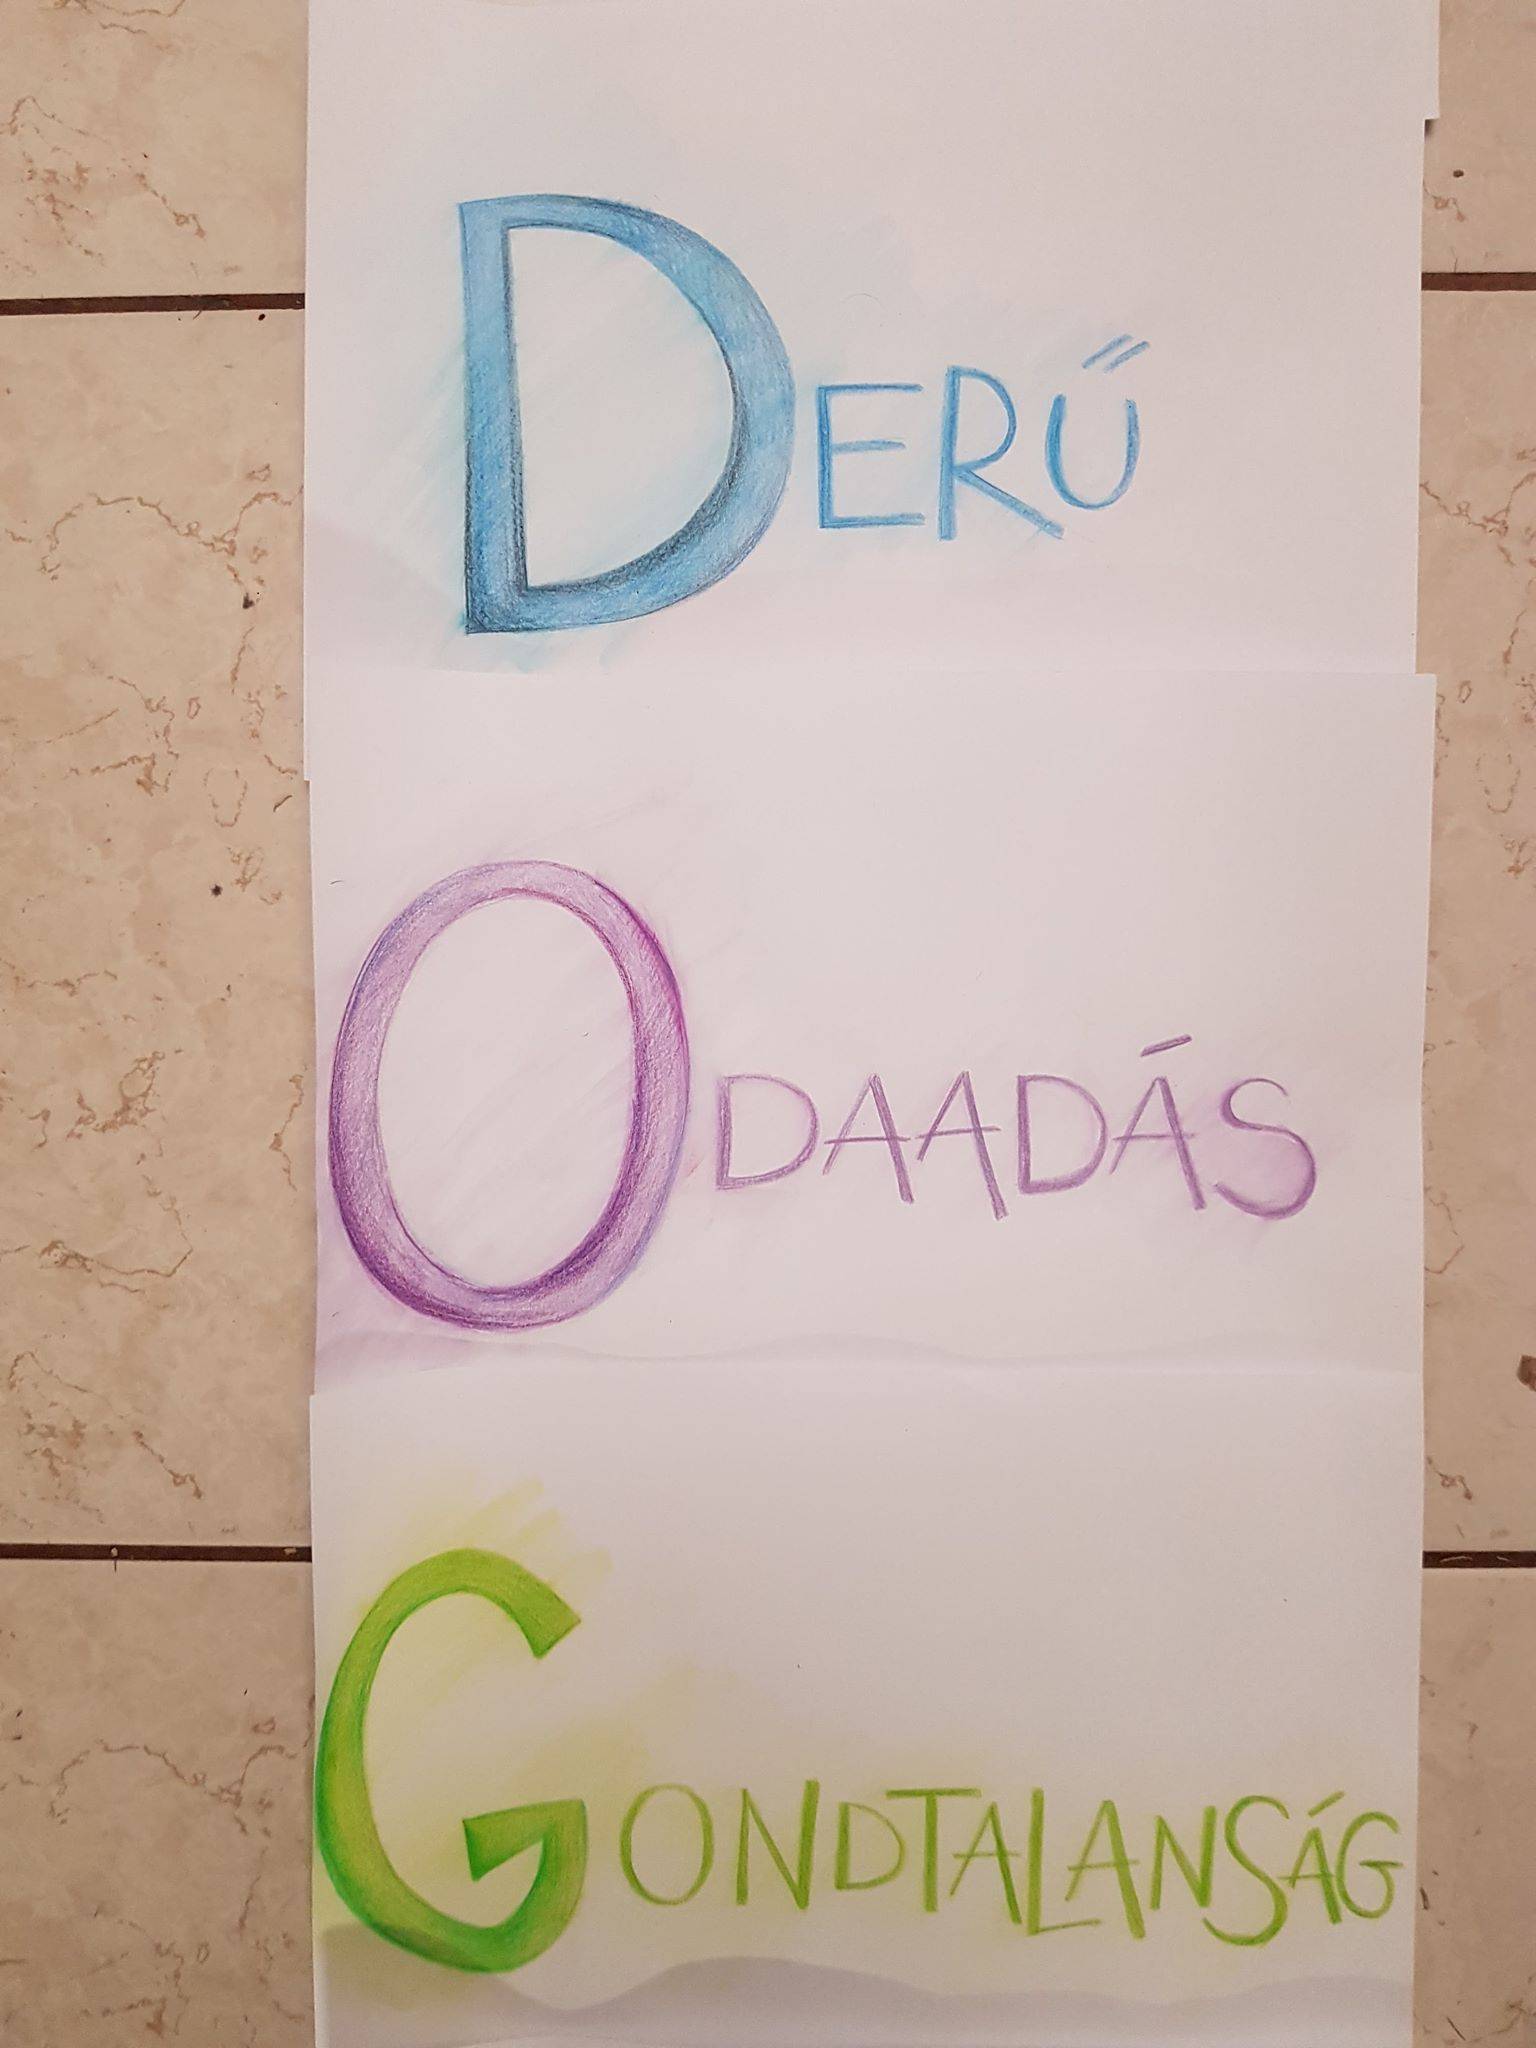 DERŰ
ODAADÁS
GONDTALANSÁG